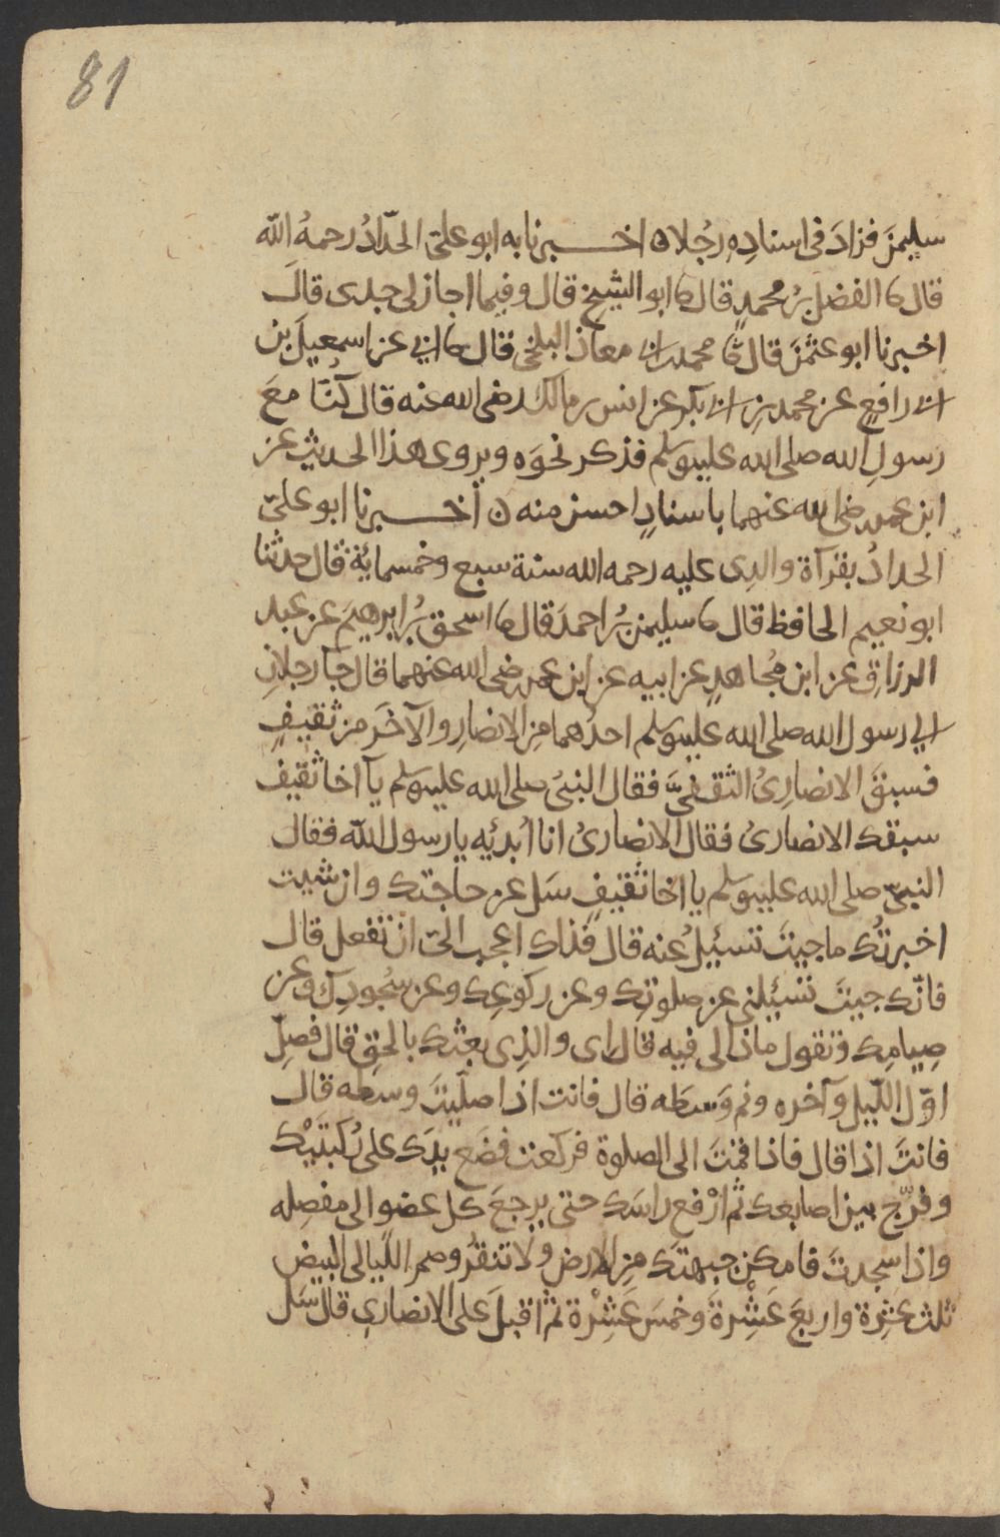 81
سليمن فزاد في اسناده رجلا ه اخبرنا به ابو علي الحدّاد رحمه الله
قال نا الفضل بن محمد قال نا ابو الشيخ قال وفيما اجاز لي جدي قال
اخبرنا ابو عثمن قال نا محمد بن معاذ البلخي قال نا ابي عن اسمعيل بن
ابي رافع عن محمد بن ابي بكر عن انس بن مالك رضي الله عنه قال كنّا مع
رسول الله صلى الله عليه وسلم فذكر نحوه ويروى هذا الحديث عن
ابن عمر رضي الله عنهما باسناد احسن منه ه أخبرنا ابو عليّ
الحداد بقرآة والدي عليه رحمه الله سنة سبع وخمسمائة قال حدثنا
ابو نعيم الحافظ قال نا سليمن بن احمد قال نا اسحق بن ابرهيم عن عبد
الرزاق عن ابن مجاهد عن ابيه عن ابن عمر رضي الله عنهما قال جآ رجلان
الى رسول الله صلى الله عليه وسلم احدهما من الانصار والآخر من ثقيف
فسبق الانصاريُ الثقفيَّ فقال النبيُ صلى الله عليه وسلم يآ اخا ثقيف
سبقك الانصاريُ فقال الانصاريُ انا اُبدئه يا رسول الله فقال
النبيّ صلى الله عليه وسلم يا اخا ثقيفٍ سَل عن حاجتك وان شيت
اخبرتُك ما جيتَ تسئيلُ عنه قال فذاك اعجب اليّ ان تفعل قال
فانّك جيتَ تسئيلني عن صلوتك وعن ركوعِك وعن سُجودِك وعن
صِيامِك وتقول ماذا لي فيه قال اى والذِي بعثك بالحقِ قال فصلِّ
اوّل اللّيل وآخره ونم وَسَطه قال فانت اذا صلّيتَ وسطه قال
فانتَ اذا قال فاذا قمتَ الى الصلوة فركعت فضَع يدَك على رُكبتَيْك
وفرّج بين اصابعك ثم ارْفع راسَك حتى يرجعَ كل عضوٍ الى مفصِله
واذا سجدتَ فامكِن جبهتَك مِن الارض ولا تنقُر وصم اللّيالى البيض
ثلث عشرة واربعَ عَشْرةَ وخمسَ عَشْرة ثم اقبلَ على الانصاري قال سَل